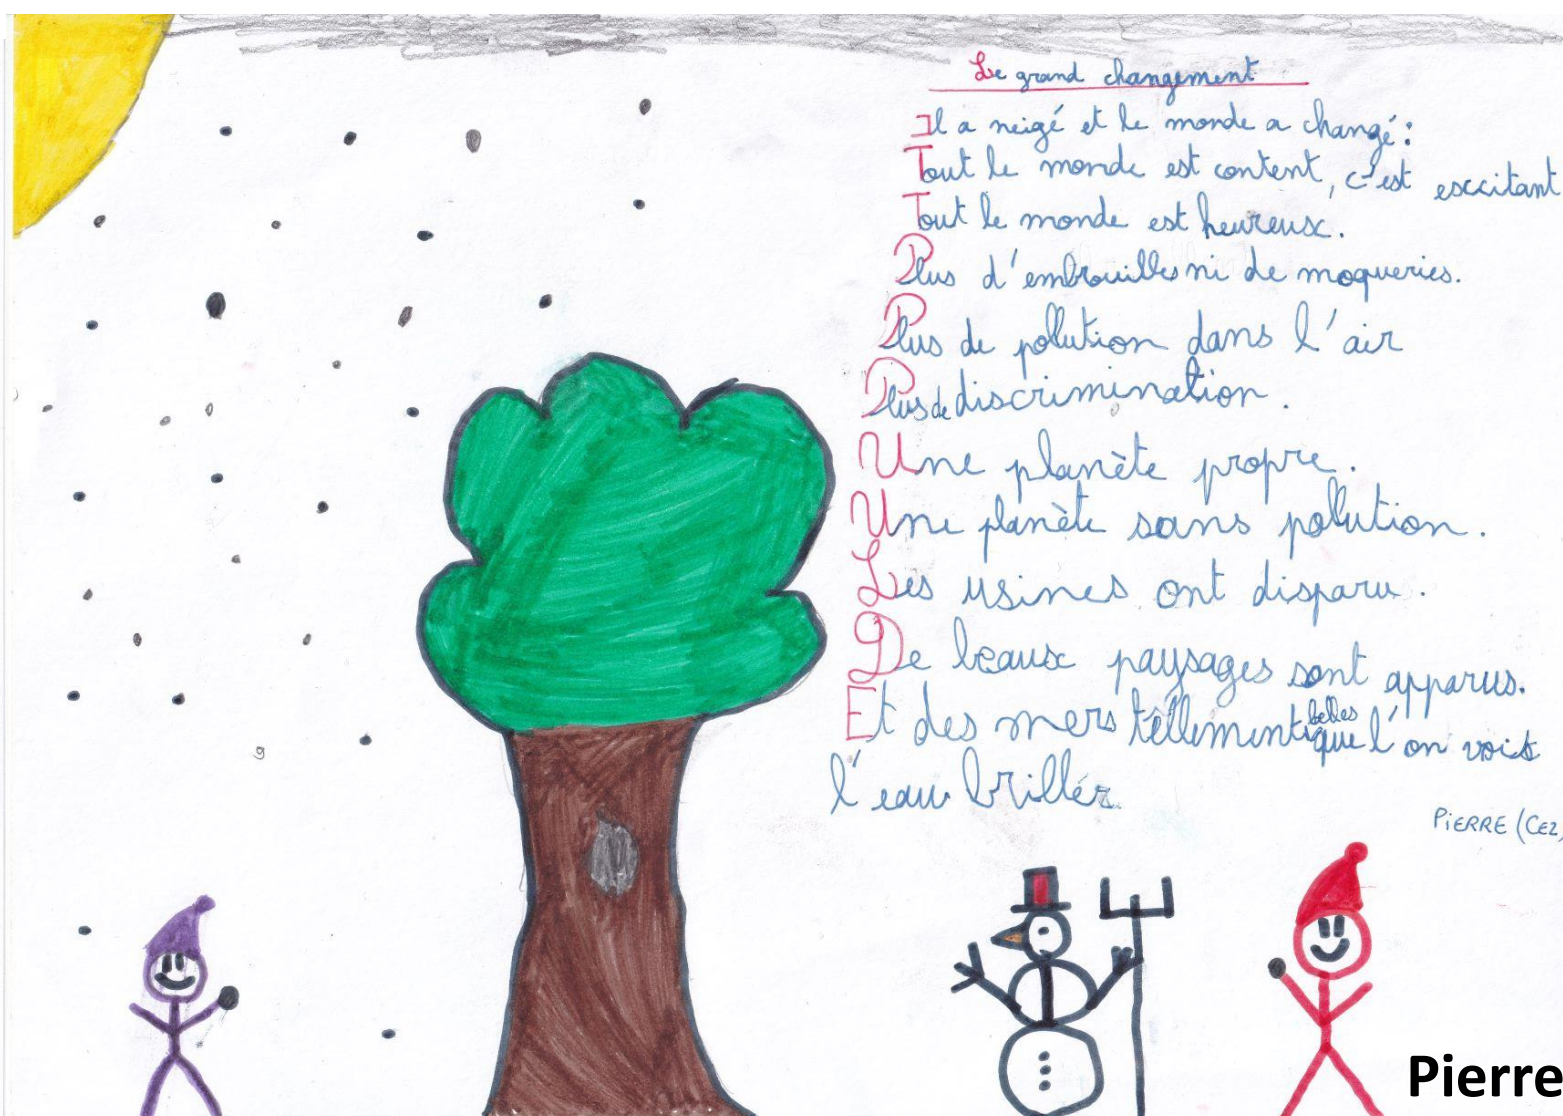 Le grand changement
Il a neigé et le monde a changé :
Tout le monde est content, c'est esccitant
Tout le monde est heureux.
Plus d'embrouilles ni de moqueries.
Plus de pollution dans l'air
Plus de discrimination.
Une planète propre.
Une planète sans polution.
Les usines ont disparu.
De beaux paysages sont apparus.
Et des mers tellement belles que l'on voit
l'eau briller
PIERRE (CE2)
Pierre